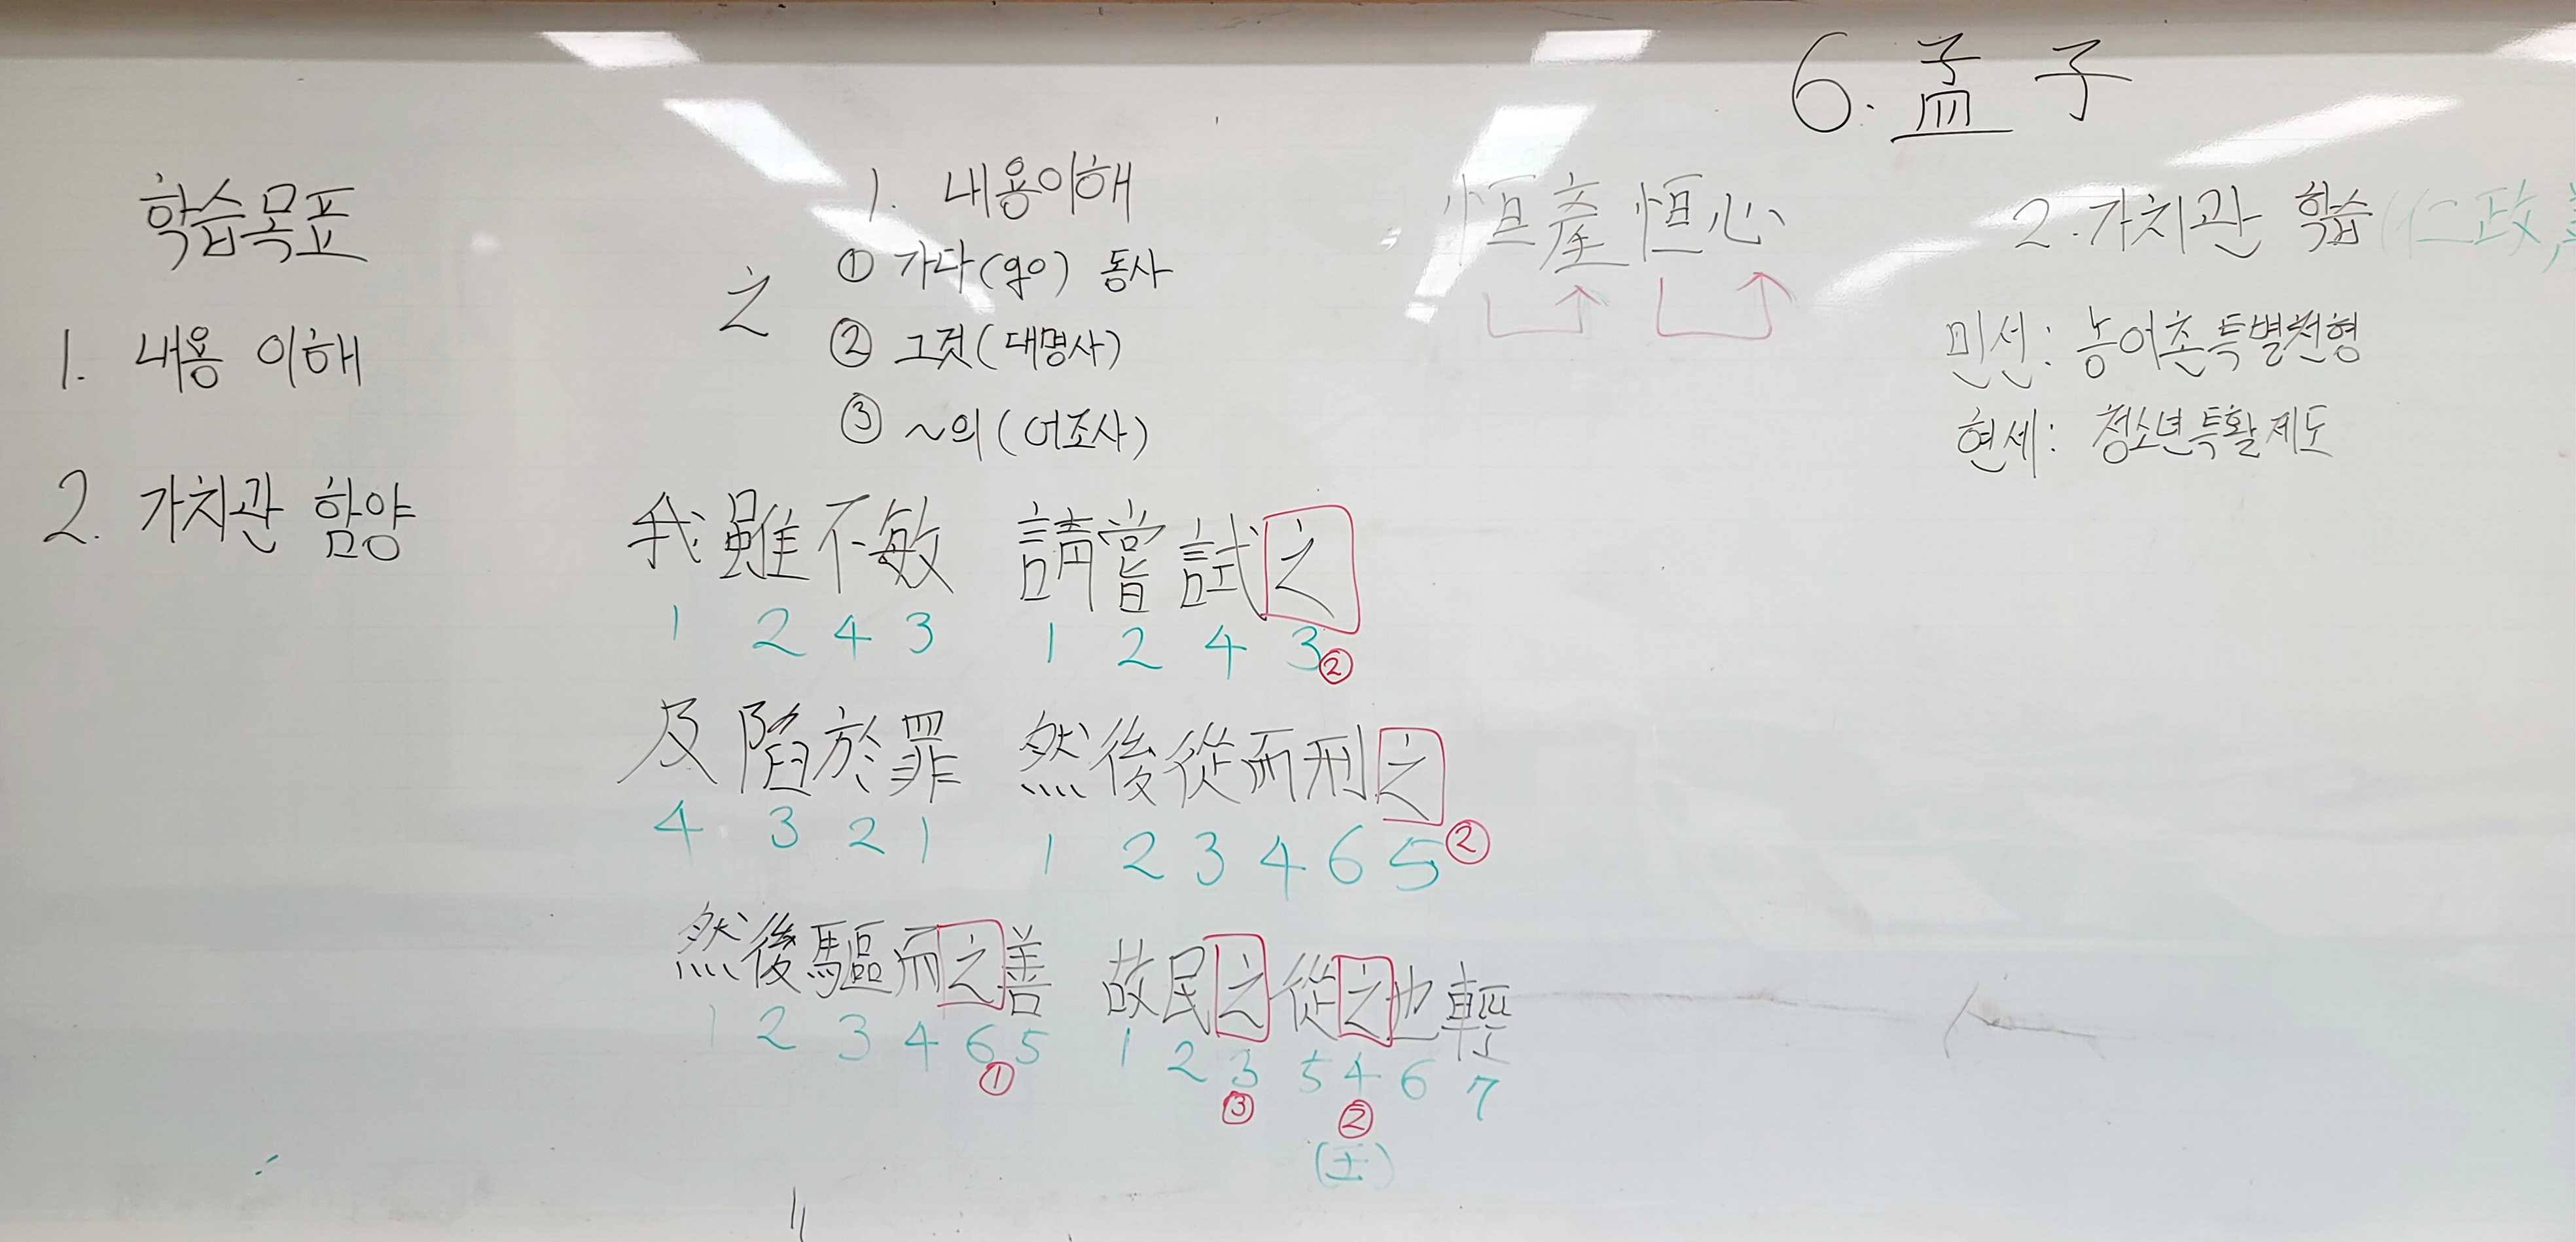 6. 孟子
학습목표
1. 내용 이해
2. 가치관 함양
1. 내용이해
之
① 가다(go) 동사
② 그것(대명사)
③ ~의(어조사)
恒産 恒心
我雖不敏 請嘗試之
1 2 4 3 1 2 4 3 ②
及陷於罪 然後從而刑之
4 3 2 1 1 2 3 4 6 5 ②
然後驅而之善 故民之從之也輕
1 2 3 4 6 5 1 2 3 5 4 6 7
① ③ ②
2. 가치관 학습 (仁政,
민선: 농어촌특별전형
현세: 청소년특활제도